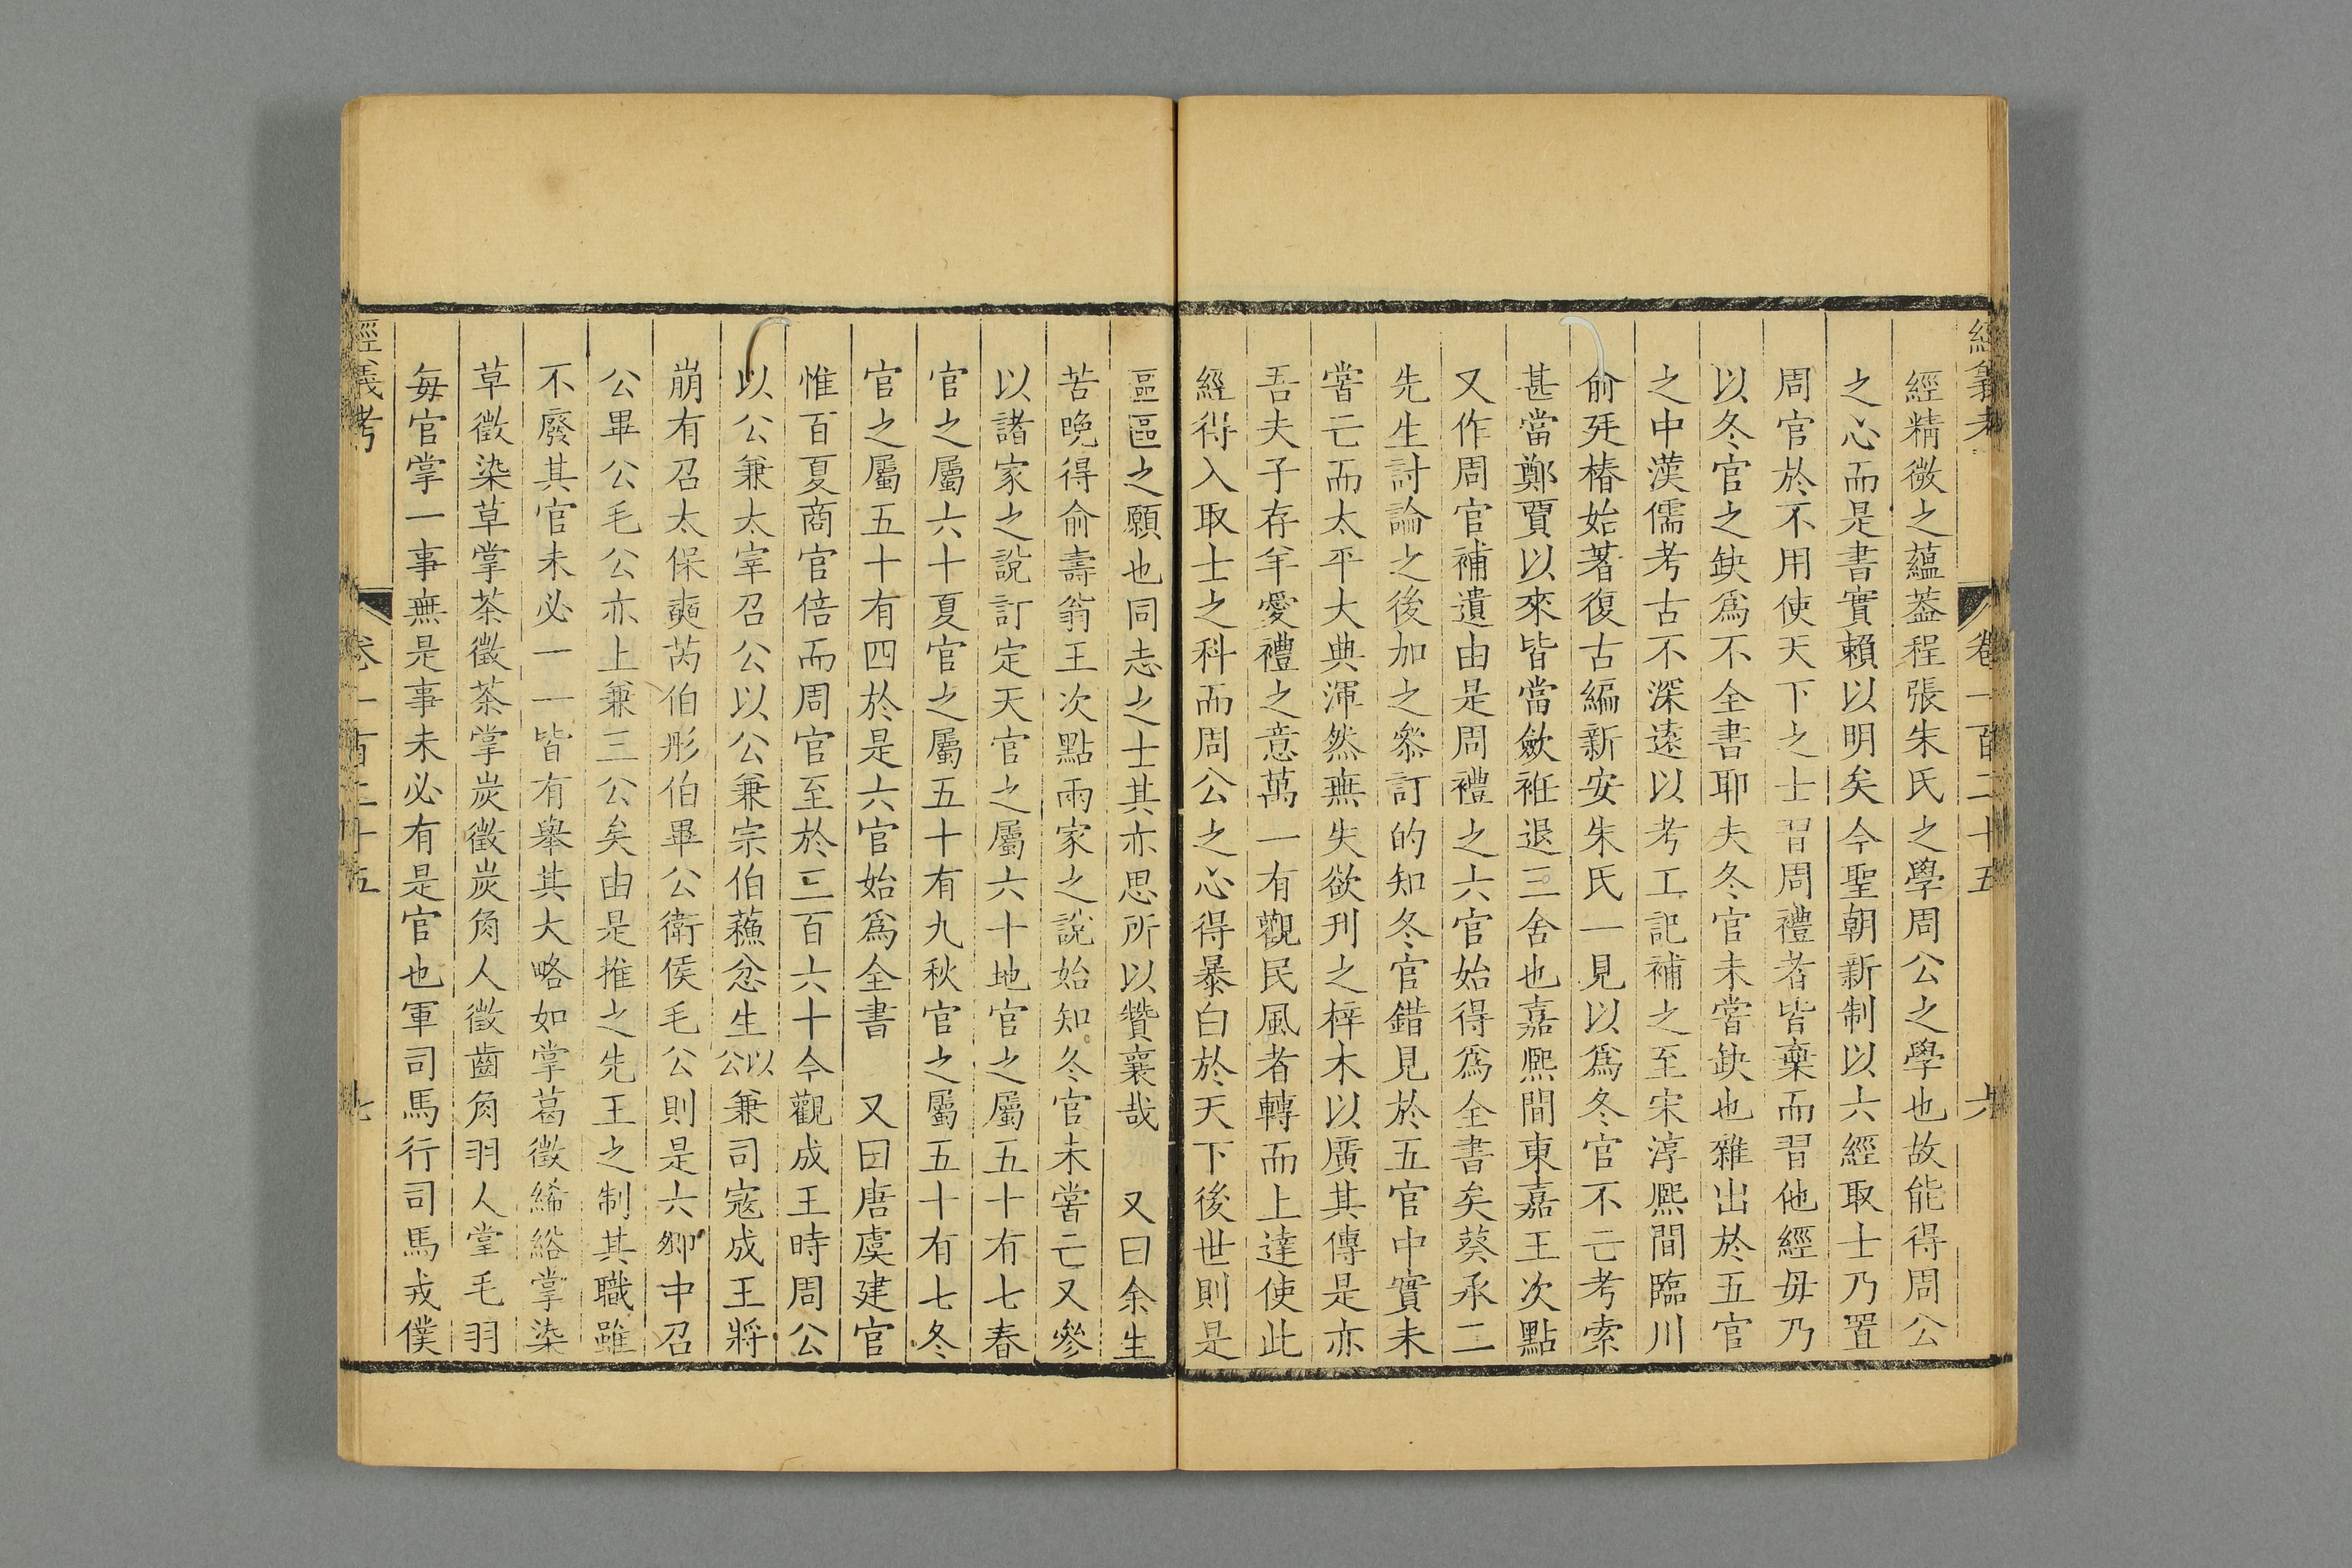 經義考
卷一百二十五
六
經精微之蘊葢程張朱氏之學周公之學也故能得周公
之心而是書實賴以明矣今聖朝新制以六經取士乃置
周官於不用使天下之士習周禮者皆棄而習他經毋乃
以冬官之缺爲不全書耶夫冬官未嘗缺也雜出於五官
之中漢儒考古不深遠以考工記補之至宋淳熙間臨川
俞廷椿始著復古編新安朱氏一見以爲冬官不亡考索
甚當鄭賈以來皆當斂衽退三舍也嘉熙間東嘉王次點
又作周官補遺由是周禮之六官始得爲全書矣葵承二
先生討論之後加之參訂的知冬官錯見於五官中實未
嘗亡而太平大典渾然無失欲刋之梓木以廣其傳是亦
吾夫子存羊愛禮之意萬一有觀民風者轉而上達使此
經得入取士之科而周公之心得暴白於天下後世則是
區區之願也同志之士其亦思所以贊襄哉 又曰余生
苦晚得俞壽翁王次點兩家之說始知冬官未嘗亡又參
以諸家之說訂定天官之屬六十地官之屬五十有七春
官之屬六十夏官之屬五十有九秋官之屬五十有七冬
官之屬五十有四於是六官始爲全書 又曰唐虞建官
惟百夏商官倍而周官至於三百六十今觀成王時周公
以公兼太宰召公以公兼宗伯蘇忿生以公兼司寇成王將
崩有召太保奭芮伯彤伯畢公衛侯毛公則是六卿中召
公畢公毛公亦上兼三公矣由是推之先王之制其職雖
不廢其官未必一一皆有舉其大略如掌葛徵絺綌掌染
草徵染草掌荼徵荼掌炭徵炭角人徵齒角羽人掌毛羽
每官掌一事無是事未必有是官也軍司馬行司馬戎僕
經義考
卷一百二十五
七